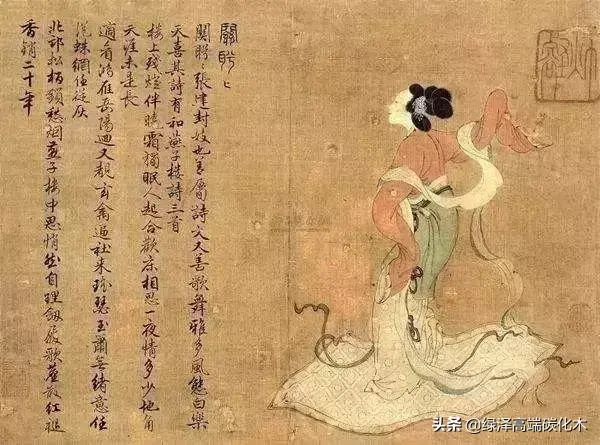 關盼〻
關盼〻張建封妓也善屬詩文又善歌舞雅多風態白樂
天喜其詩有和燕子樓詩三首
樓上殘燈伴曉霜獨眠人起合歡床相思一夜情多少地角
天涯未是長
適看鴻雁岳陽迴又覩玄禽逼社來瑤瑟玉簫無緒意任
從蛛網任從灰
北邙松柏鎖愁烟燕子樓中思悄然自理劔履歌塵散紅褪
香銷二十年
头条 @绿泽高端碳化木